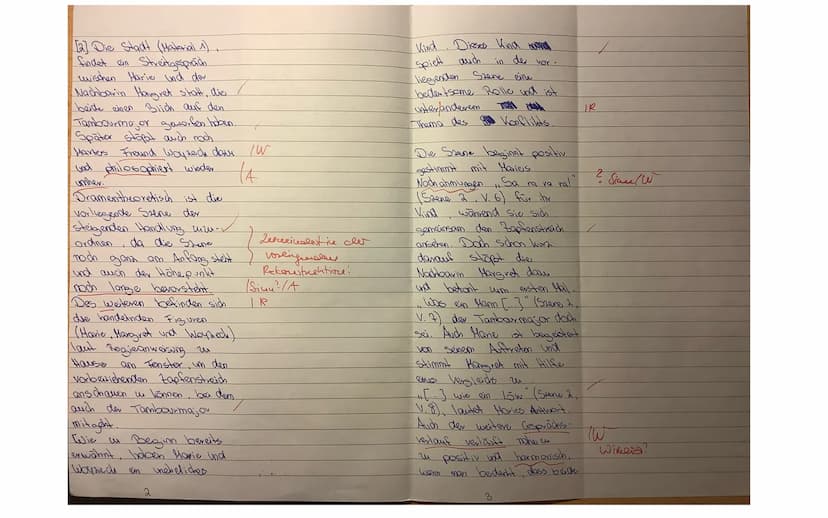 [2] Die Stadt (Material 1),
findet ein Streitgespräch
zwischen Marie und der
Nachbarin Margret statt, die
beide einen Blick auf den
Tambourmajor geworfen haben.
Später stößt auch noch
Maries Freund Woyzeck dazu /W
und philosophiert wieder /A
umher.
Dramentheoretisch ist die
vorliegende Szene der
steigenden Handlung
ordnen, da die Szene
noch ganz am Anfang steht
und auch der Höhepunkt Rekonstruktion!
noch lange bevorsteht. /Sinn?/A
Des weiteren befinden sich /R
die handelnden Figuren
(Marie, Margret und Woyzeck)
laut Regieanweisung zu
Hause am Fenster, um den
vorbeiziehenden Zapfenstreich
anschauen zu können, bei dem
auch der Tambourmajor
mitgeht.
Wie zu Beginn bereits
erwähnt, haben Marie und
Woyzeck ein uneheliches
2
Kind. Dieses Kind
spielt auch in der vor-
liegenden Szene eine
bedeutsame Rolle und ist
unter/anderem /R
Thema des Konflikts.
Die Szene beginnt positiv
gestimmt mit Maries
Nachahmungen „Sa ra ra ra!" ? Sinn/W
(Szene 2, V. 6) für ihr
Kind, während sie sich
gemeinsam den Zapfenstreich
ansehen. Doch schon kurz
darauf stößt die
Nachbarin Margret dazu
und betont zum ersten Mal,
„Was ein Mann [...]" (Szene 2,
V. 7) der Tambourmajor doch
sei. Auch Marie ist begeistert
von seinem Auftreten und
stimmt Margret mit Hilfe
eines Vergleichs zu
„[...] wie ein Löw" (Szene 2,
V. 8), lautet Maries Antwort.
Auch der weitere Gesprächs-
verlauf verläuft /W
zu positiv und harmonisch,
wenn man bedenkt, dass beide
3